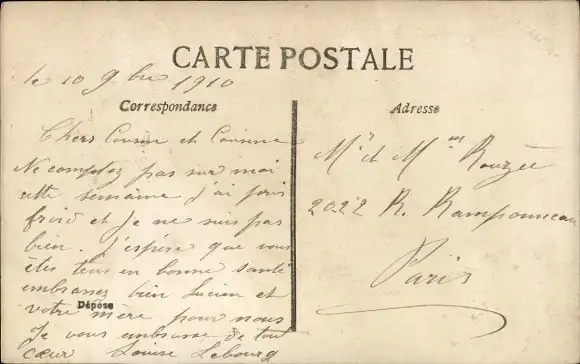 CARTE POSTALE
le 10 9bre 1910
Correspondance
Chers Cousin et Cousine
Ne comptez pas sur moi
cette semaine j'ai pris
froid et je ne suis pas
bien. J'espère que vous
êtes tous en bonne santé
embrassez bien Lucien et
votre mère pour nous
Dépose
Je vous embrasse de tout
cœur Louise Lebourg
Adresse
Mr et Mme Rouzée
20 22 R. Ramponneau
Paris